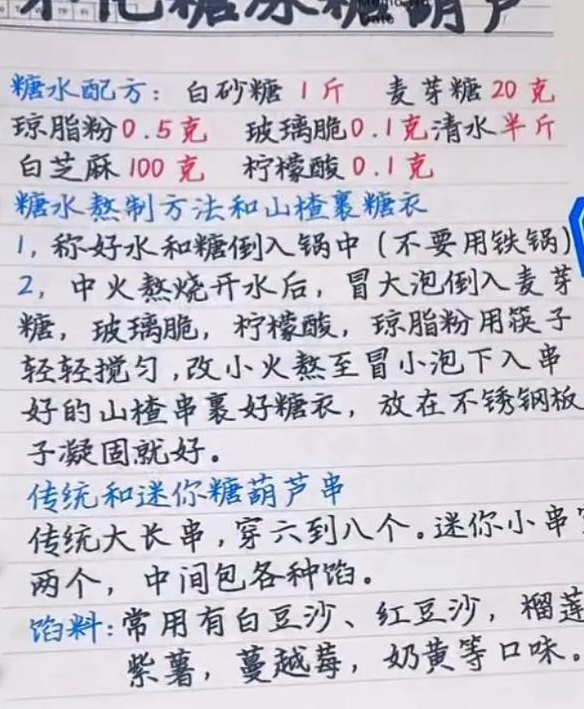 不化糖冰糖葫芦
糖水配方：白砂糖1斤 麦芽糖20克
琼脂粉0.5克 玻璃脆0.1克清水半斤
白芝麻100克 柠檬酸0.1克
糖水熬制方法和山楂裹糖衣
1，称好水和糖倒入锅中（不要用铁锅）
2，中火熬烧开水后，冒大泡倒入麦芽
糖，玻璃脆，柠檬酸，琼脂粉用筷子
轻轻搅匀，改小火熬至冒小泡下入串
好的山楂串裹好糖衣，放在不锈钢板
子凝固就好。
传统和迷你糖葫芦串
传统大长串，穿六到八个。迷你小串
两个，中间包各种馅。
馅料：常用有白豆沙、红豆沙，榴莲
紫薯，蔓越莓，奶黄等口味。